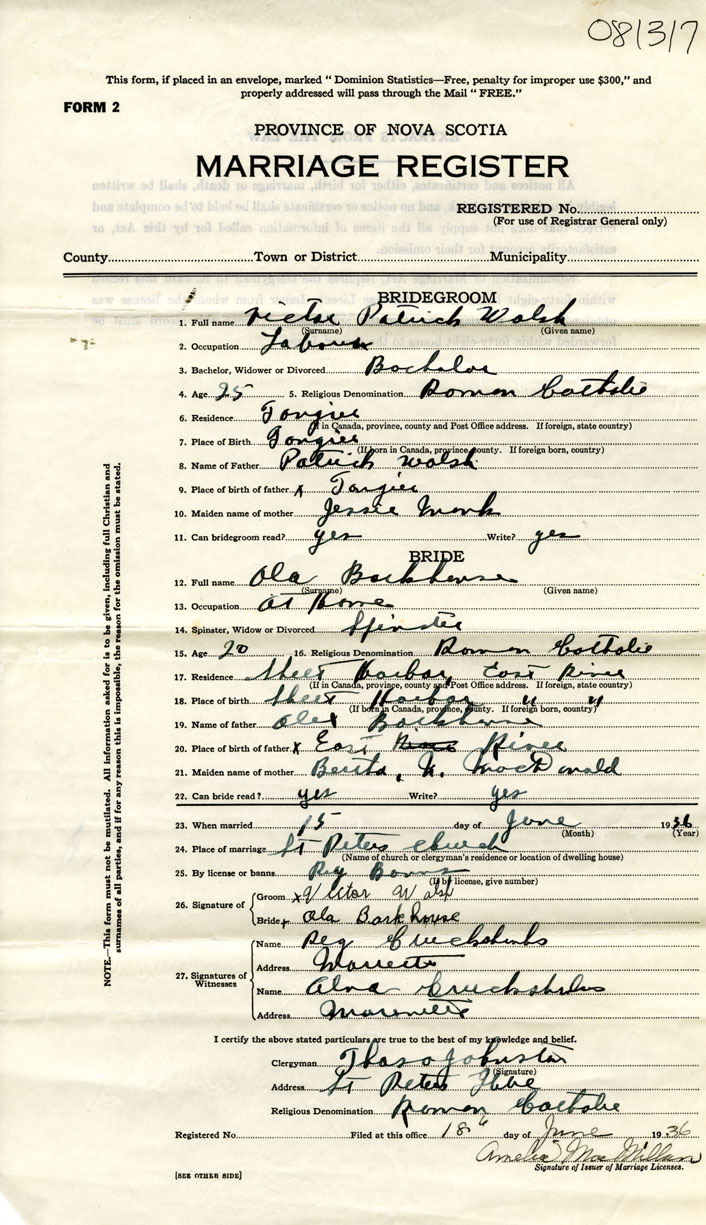 081317
This form, if placed in an envelope, marked "Dominion Statistics—Free, penalty for improper use $300," and
properly addressed will pass through the Mail "FREE."
FORM 2
PROVINCE OF NOVA SCOTIA
MARRIAGE REGISTER
REGISTERED No.
(For use of Registrar General only)
County Town or District Municipality
BRIDEGROOM
1. Full name Victor Patrick Walsh
(Surname) (Given name)
2. Occupation Labourer
3. Bachelor, Widower or Divorced Bachelor
4. Age 25 5. Religious Denomination Roman Catholic
6. Residence Tangier
(If in Canada, province, county and Post Office address. If foreign, state country)
7. Place of Birth Tangier
(If born in Canada, province, county. If foreign born, country)
8. Name of Father Patrick Walsh
9. Place of birth of father x Tangier
10. Maiden name of mother Jessie Monk
11. Can bridegroom read? yes Write? yes
BRIDE
12. Full name Ola Barkhouse
(Surname) (Given name)
13. Occupation At Home
14. Spinster, Widow or Divorced Spinster
15. Age 20 16. Religious Denomination Roman Catholic
17. Residence Sheet Harbor, East River
(If in Canada, province, county and Post Office address. If foreign, state country)
18. Place of birth Sheet Harbor " "
(If born in Canada, province, county. If foreign born, country)
19. Name of father Alex Barkhouse
20. Place of birth of father x East River
21. Maiden name of mother Berita, K. MacDonald
22. Can bride read? yes Write? yes
23. When married 15 day of June 1936
(Month) (Year)
24. Place of marriage St Peters Church
(Name of church or clergyman's residence or location of dwelling house)
25. By license or banns Banns
(If by license, give number)
26. Signature of Groom x Victor Walsh
Bride x Ola Barkhouse
27. Signatures of Witnesses Name Reg Cruickshanks
Address
Name Alva Cruickshanks
Address
I certify the above stated particulars are true to the best of my knowledge and belief.
Clergyman Thos Johnston
(Signature)
Address St Peters
Religious Denomination Roman Catholic
Registered No. Filed at this office 18th day of June 1936
Amelia MacMillan
Signature of Issuer of Marriage Licenses.
[SEE OTHER SIDE]
NOTE.—This form must not be mutilated. All information asked for is to be given, including full Christian and
surnames of all parties, and if for any reason this is impossible, the reason for the omission must be stated.